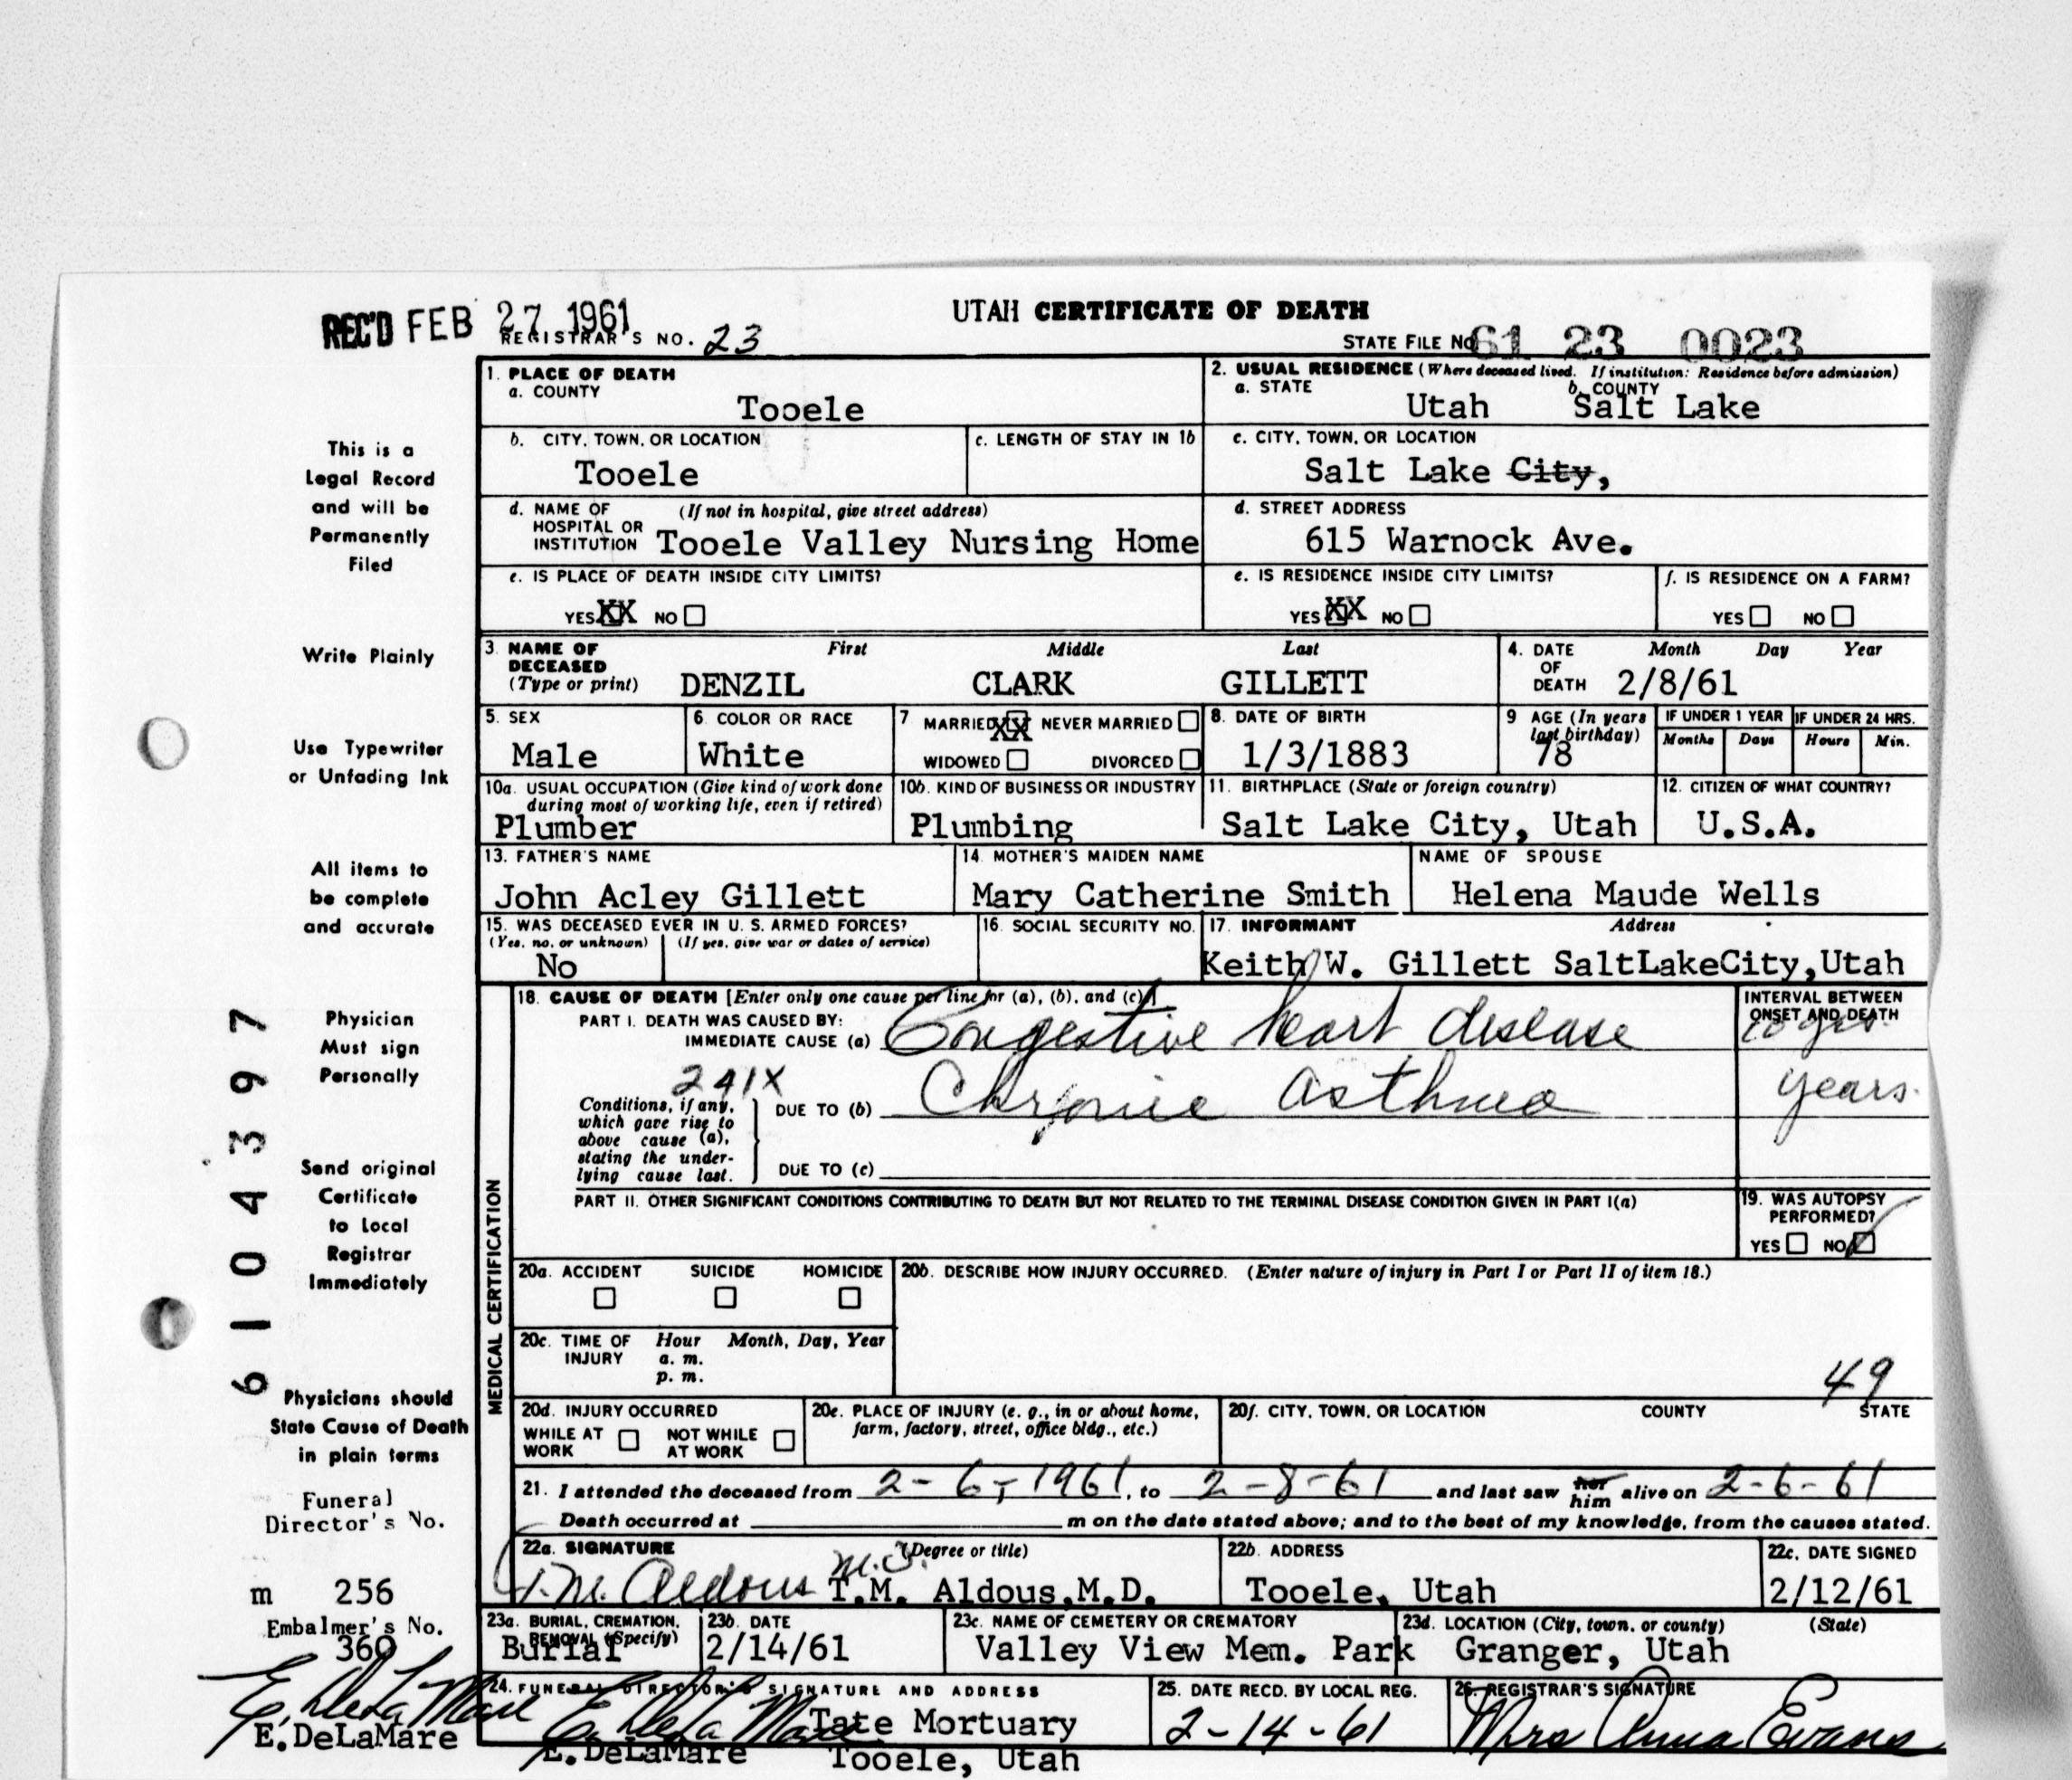 UTAH CERTIFICATE OF DEATH
REC'D FEB 27 1961
REGISTRAR'S NO. 23
STATE FILE NO. 61 23 0023
1. PLACE OF DEATH
a. COUNTY
Tooele
2. USUAL RESIDENCE (Where deceased lived. If institution: Residence before admission)
a. STATE
Utah
b. COUNTY
Salt Lake
b. CITY, TOWN, OR LOCATION
Tooele
c. LENGTH OF STAY IN 1b
c. CITY, TOWN, OR LOCATION
Salt Lake City,
d. NAME OF HOSPITAL OR INSTITUTION (If not in hospital, give street address)
Tooele Valley Nursing Home
d. STREET ADDRESS
615 Warnock Ave.
e. IS PLACE OF DEATH INSIDE CITY LIMITS?
YES XX NO
e. IS RESIDENCE INSIDE CITY LIMITS?
YES XX NO
f. IS RESIDENCE ON A FARM?
YES NO
3. NAME OF DECEASED (Type or print)
First Middle Last
DENZIL CLARK GILLETT
4. DATE OF DEATH
Month Day Year
2/8/61
5. SEX
Male
6. COLOR OR RACE
White
7 MARRIED XX NEVER MARRIED
WIDOWED DIVORCED
8. DATE OF BIRTH
1/3/1883
9 AGE (In years last birthday)
78
IF UNDER 1 YEAR
Months Days
IF UNDER 24 HRS.
Hours Min.
10a. USUAL OCCUPATION (Give kind of work done during most of working life, even if retired)
Plumber
10b. KIND OF BUSINESS OR INDUSTRY
Plumbing
11. BIRTHPLACE (State or foreign country)
Salt Lake City, Utah
12. CITIZEN OF WHAT COUNTRY?
U.S.A.
13. FATHER'S NAME
John Acley Gillett
14. MOTHER'S MAIDEN NAME
Mary Catherine Smith
NAME OF SPOUSE
Helena Maude Wells
15. WAS DECEASED EVER IN U. S. ARMED FORCES?
(Yes, no, or unknown) (If yes, give war or dates of service)
No
16. SOCIAL SECURITY NO.
17. INFORMANT Address
Keith W. Gillett SaltLakeCity,Utah
MEDICAL CERTIFICATION
18. CAUSE OF DEATH [Enter only one cause per line for (a), (b), and (c)]
PART I. DEATH WAS CAUSED BY:
IMMEDIATE CAUSE (a) Congestive heart disease
INTERVAL BETWEEN ONSET AND DEATH
10 yrs.
241X
Conditions, if any, which gave rise to above cause (a), stating the underlying cause last.
DUE TO (b) Chronic asthma
years.
DUE TO (c)
PART II. OTHER SIGNIFICANT CONDITIONS CONTRIBUTING TO DEATH BUT NOT RELATED TO THE TERMINAL DISEASE CONDITION GIVEN IN PART I(a)
19. WAS AUTOPSY PERFORMED?
YES NO
20a. ACCIDENT SUICIDE HOMICIDE
20b. DESCRIBE HOW INJURY OCCURRED. (Enter nature of injury in Part I or Part II of item 18.)
20c. TIME OF INJURY
Hour Month, Day, Year
a. m.
p. m.
49
20d. INJURY OCCURRED
WHILE AT WORK NOT WHILE AT WORK
20e. PLACE OF INJURY (e. g., in or about home, farm, factory, street, office bldg., etc.)
20f. CITY, TOWN, OR LOCATION COUNTY STATE
21. I attended the deceased from 2-6-1961, to 2-8-61 and last saw her him alive on 2-6-61
Death occurred at m on the date stated above; and to the best of my knowledge, from the causes stated.
22a. SIGNATURE (Degree or title)
T.M. Aldous M.D. T.M. Aldous,M.D.
22b. ADDRESS
Tooele, Utah
22c. DATE SIGNED
2/12/61
23a. BURIAL, CREMATION, REMOVAL (Specify)
Burial
23b. DATE
2/14/61
23c. NAME OF CEMETERY OR CREMATORY
Valley View Mem. Park
23d. LOCATION (City, town, or county) (State)
Granger, Utah
24. FUNERAL DIRECTOR'S SIGNATURE AND ADDRESS
E. DeLaMare Tate Mortuary
E. DeLaMare Tooele, Utah
25. DATE RECD. BY LOCAL REG.
2-14-61
26. REGISTRAR'S SIGNATURE
Mrs Anna Evans
This is a
Legal Record
and will be
Permanently
Filed
Write Plainly
Use Typewriter
or Unfading Ink
All items to
be complete
and accurate
Physician
Must sign
Personally
Send original
Certificate
to Local
Registrar
Immediately
Physicians should
State Cause of Death
in plain terms
Funeral
Director's No.
m 256
Embalmer's No.
360
E. DeLaMare
E.DeLaMare
6104397